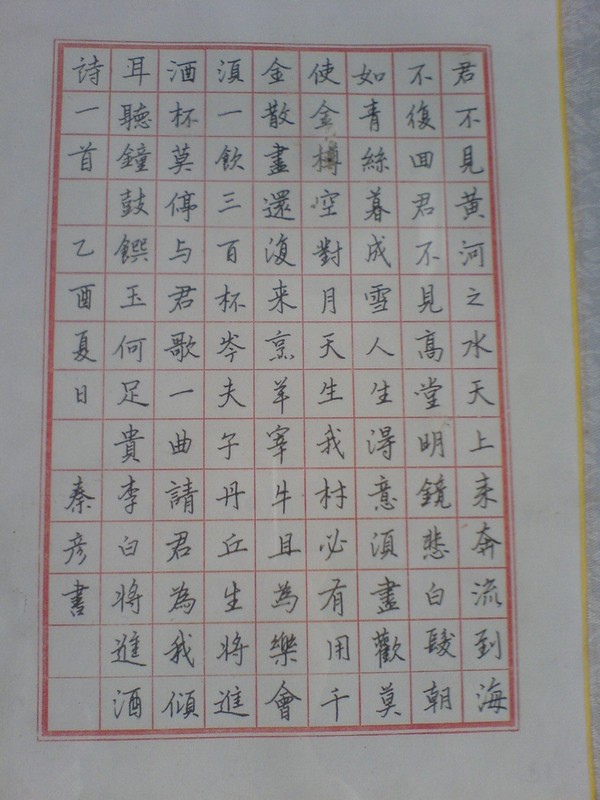 君不見黃河之水天上来奔流到海
不復回君不見高堂明鏡悲白髮朝
如青絲暮成雪人生得意須盡歡莫
使金樽空對月天生我材必有用千
金散盡還復来烹羊宰牛且為樂會
須一飲三百杯岑夫子丹丘生將進
酒杯莫停与君歌一曲請君為我傾
耳聽鐘鼓饌玉何足貴李白將進酒
詩一首 乙酉夏日 秦彦書